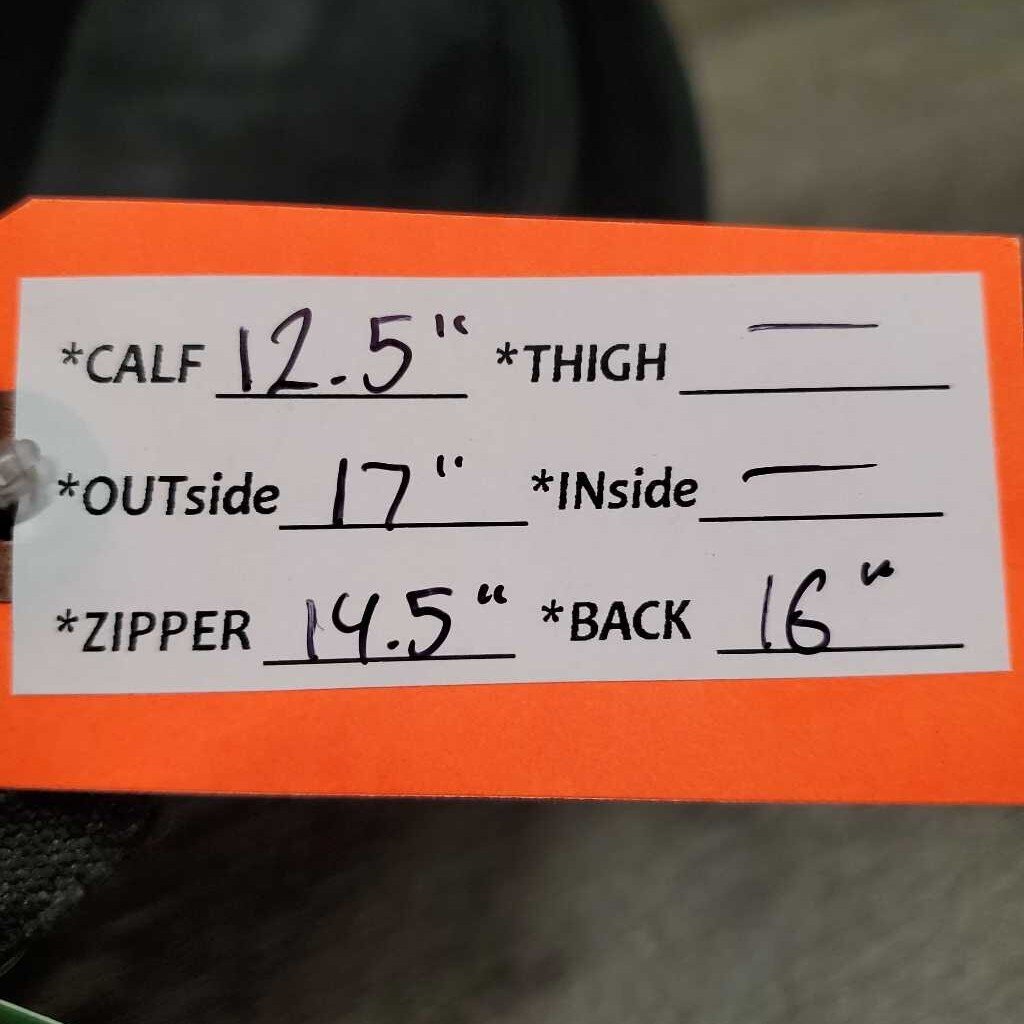 *CALF 12.5" *THIGH —
*OUTside 17" *INside —
*ZIPPER 14.5" *BACK 16"